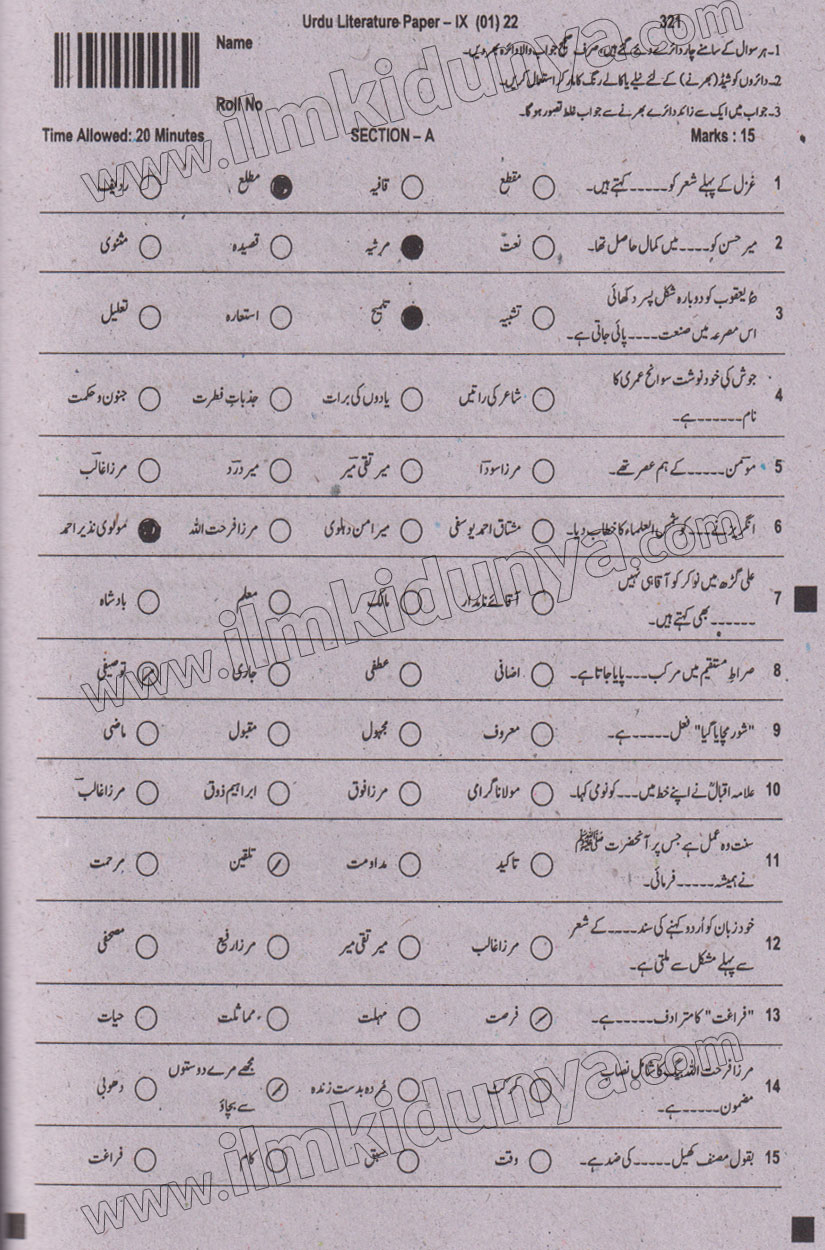 Urdu Literature Paper – IX (01) 22 321
Name
Roll No
1۔ ہر سوال کے سامنے چار دائرے دئے گئے ہیں، صرف صحیح جواب والا دائرہ بھر دیں۔
2۔ دائروں کو شیڈ (بھرنے) کے لئے نیلے یا کالے رنگ کا مارکر استعمال کریں۔
3۔ جواب میں ایک سے زائد دائرے بھرنے سے جواب غلط تصور ہو گا۔
Time Allowed: 20 Minutes SECTION – A Marks : 15
1 غزل کے پہلے شعر کو ----- کہتے ہیں۔ مقطع قافیہ مطلع ردیف
2 میر حسن کو ---- میں کمال حاصل تھا۔ نعت مرثیہ قصیدہ مثنوی
3 یعقوب کو دوبارہ شکل پسر دکھائی
اس مصرعہ میں صنعت ---- پائی جاتی ہے۔ تشبیہ تلمیح استعارہ تعلیل
4 جوش کی خود نوشت سوانح عمری کا
نام ------ ہے۔ شاعر کی راتیں یادوں کی برات جذباتِ فطرت جنون و حکمت
5 مومن ----- کے ہم عصر تھے۔ مرزا سودا میر تقی میر میر درد مرزا غالب
6 انگریز نے ---- کو شمس العلماء کا خطاب دیا۔ مشتاق احمد یوسفی میر امن دہلوی مرزا فرحت اللہ مولوی نذیر احمد
7 علی گڑھ میں نوکر کو آقا ہی نہیں
------ بھی کہتے ہیں۔ آقائے نامدار مالک معلم بادشاہ
8 صراطِ مستقیم میں مرکب --- پایا جاتا ہے۔ اضافی عطفی جاری توصیفی
9 "شور مچایا گیا" فعل ----- ہے۔ معروف مجہول مقبول ماضی
10 علامہ اقبالؒ نے اپنے خط میں --- کو نومی کہا۔ مولانا گرامی مرزا فوق ابراہیم ذوق مرزا غالب
11 سنت وہ عمل ہے جس پر آنحضرت ﷺ
نے ہمیشہ ----- فرمائی۔ تاکید مداومت تلقین مرحمت
12 خود زبان کو اُردو کہنے کی سند ---- کے شعر
سے پہلے مشکل سے ملتی ہے۔ مرزا غالب میر تقی میر مرزا رفیع مصحفی
13 "فراغت" کا مترادف ----- ہے۔ فرصت مہلت مماثلت حیات
14 مرزا فرحت اللہ بیگ کا شامل نصاب
مضمون ----- ہے۔ کرکٹ مُردہ بدست زندہ مجھے مرے دوستوں سے بچاؤ دھوبی
15 بقول مصنف کھیل ----- کی ضد ہے۔ وقت سبق کام فراغت
www.ilmkidunya.com
www.ilmkidunya.com
www.ilmkidunya.com